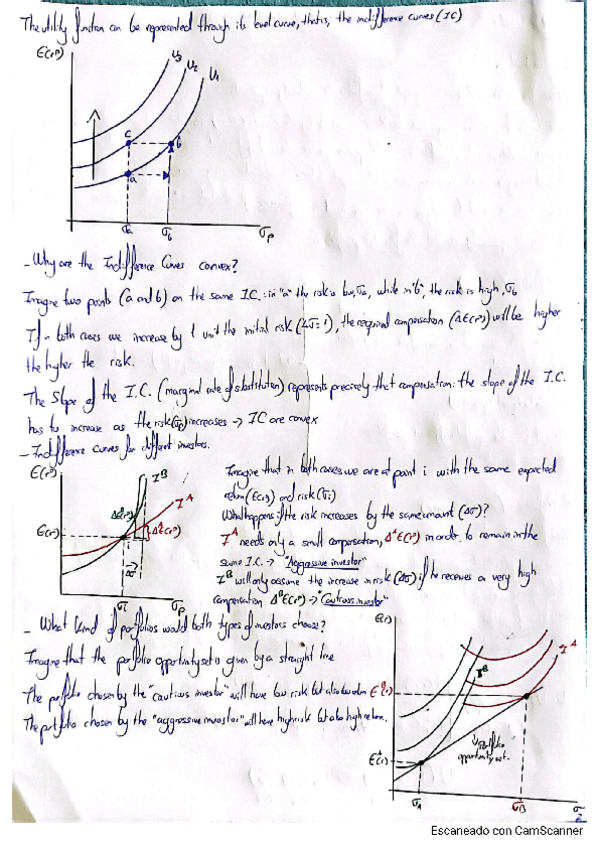 The utility function can be represented through its level curve, that is, the indifference curves (IC)
E(rp)
U3
U2
U1
c
b
a
σa
σb
σp
- Why are the Indifference Curves convex?
Imagine two points (a and b) on the same I.C.: in "a" the risk is low, σa, while in "b", the risk is high, σb
If in both cases we increase by 1 unit the initial risk (Δσ=1), the required compensation (ΔE(rp)) will be higher
the higher the risk.
The Slope of the I.C. (marginal rate of substitution) represents precisely that compensation: the slope of the I.C.
has to increase as the risk (σp) increases → IC are convex
- Indifference curves for different investors.
E(rp)
I B
I A
E(ri)
i
Δσ
σi
σp
Imagine that in both cases we are at point i with the same expected
return (E(ri)) and risk (σi)
What happens if the risk increases by the same amount (Δσ)?
I A needs only a small compensation, Δ A E(rp) in order to remain in the
same I.C. → "Aggressive investor"
I B will only assume the increase in risk (Δσ) if he receives a very high
compensation Δ B E(rp) → "Cautious investor"
- What kind of portfolios would both types of investors choose?
Imagine that the portfolio opportunity set is given by a straight line
The portfolio chosen by the "cautious investor" will have low risk but also low return
The portfolio chosen by the "aggressive investor" will have high risk but also high return.
E(r)
I B
I A
Portfolio
opportunity set.
σA
σB
Escaneado con CamScanner